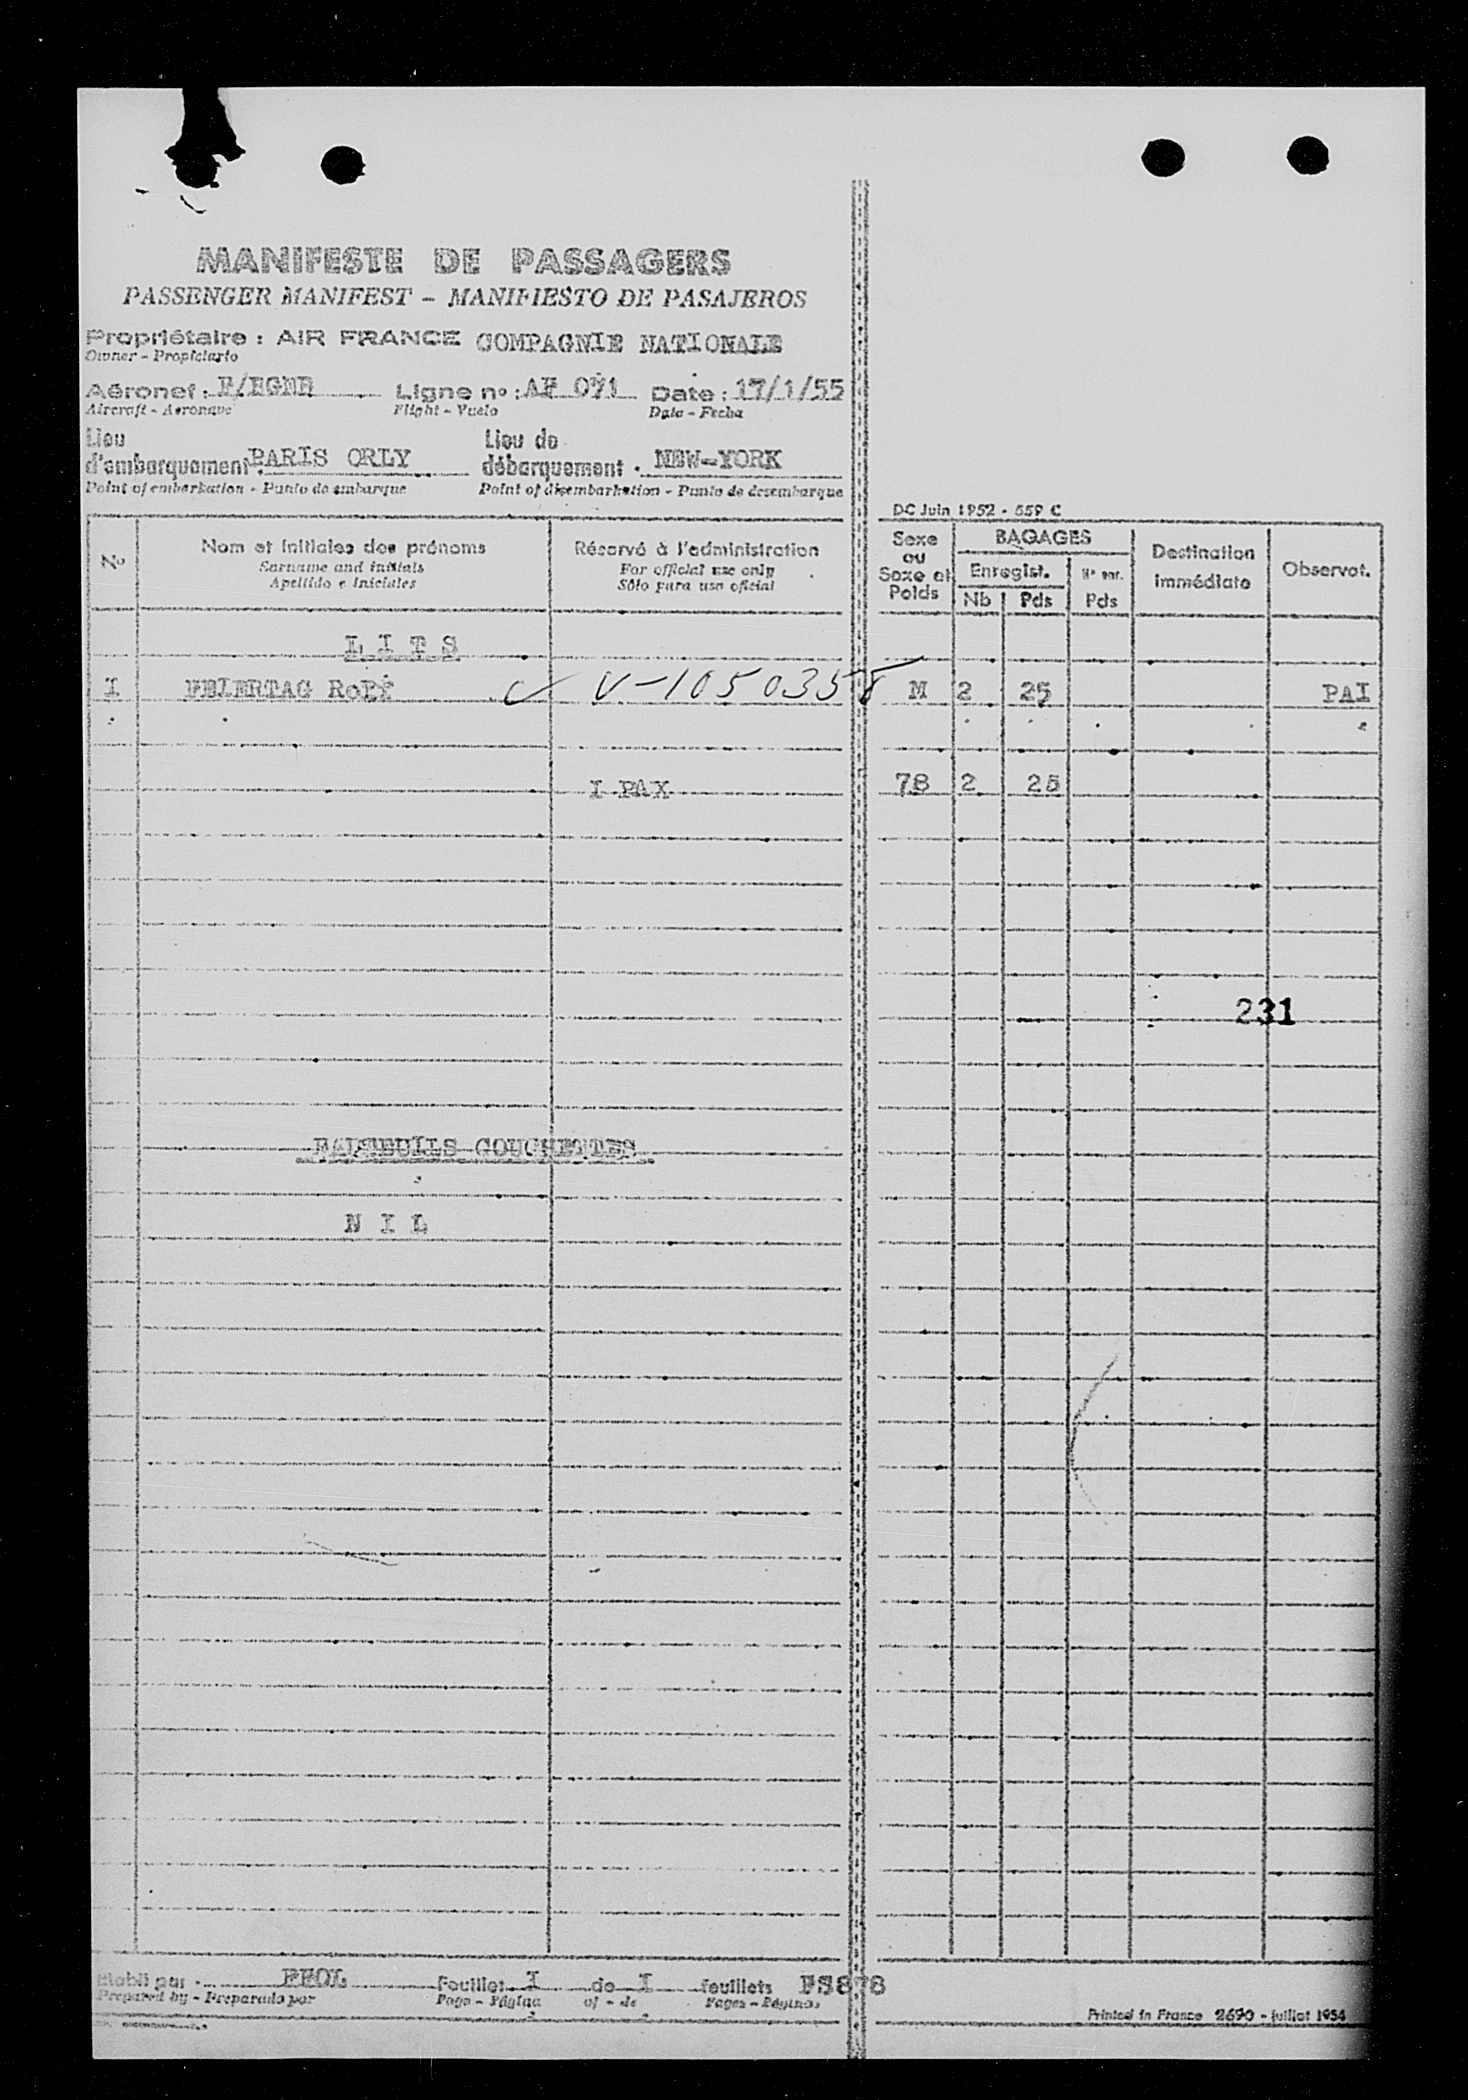 MANIFESTE DE PASSAGERS
PASSENGER MANIFEST - MANIFIESTO DE PASAJEROS
Propriétaire : AIR FRANCE COMPAGNIE NATIONALE
Owner - Propietario
Aéronef : Ligne no : AF 071 Date : 17/1/55
Aircraft - Aeronave Flight - Vuelo Date - Fecha
Lieu d'embarquement : PARIS ORLY Lieu de débarquement : NEW-YORK
Point of embarkation - Punto de embarque Point of disembarkation - Punto de desembarque
DC Juin 1952 - 559 C
No Nom et initiales des prénoms Réservé à l'administration Sexe ou Sexe et Poids BAGAGES Destination immédiate Observat.
Surname and initials For official use only Enregist. Nº enr.
Apellido e iniciales Sólo para uso oficial Nb Pds Pds
L I T S
I FEIERTAG V-1050358 M 2 25 PAI
I PAX 78 2 25
231
FAUTEUILS COUCHETTES
N I L
Etabli par : Feuillet I de I feuillets
Prepared by - Preparado por Page - Página of - de Pages - Páginas
Printed in France 2690 - juillet 1954